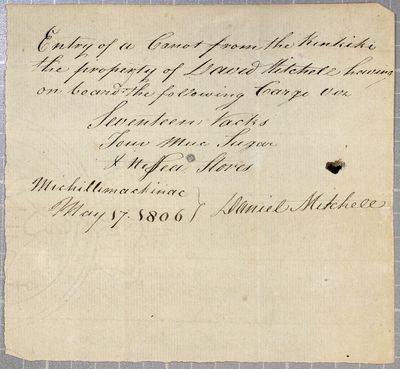 Entry of a Canot from the Kinkiki
the property of David Mitchell having
on board the following Cargo viz
Seventeen Packs
Four Muc Sugar
& Stores
Michilimackinac
May 17. 1806 } Daniel Mitchell